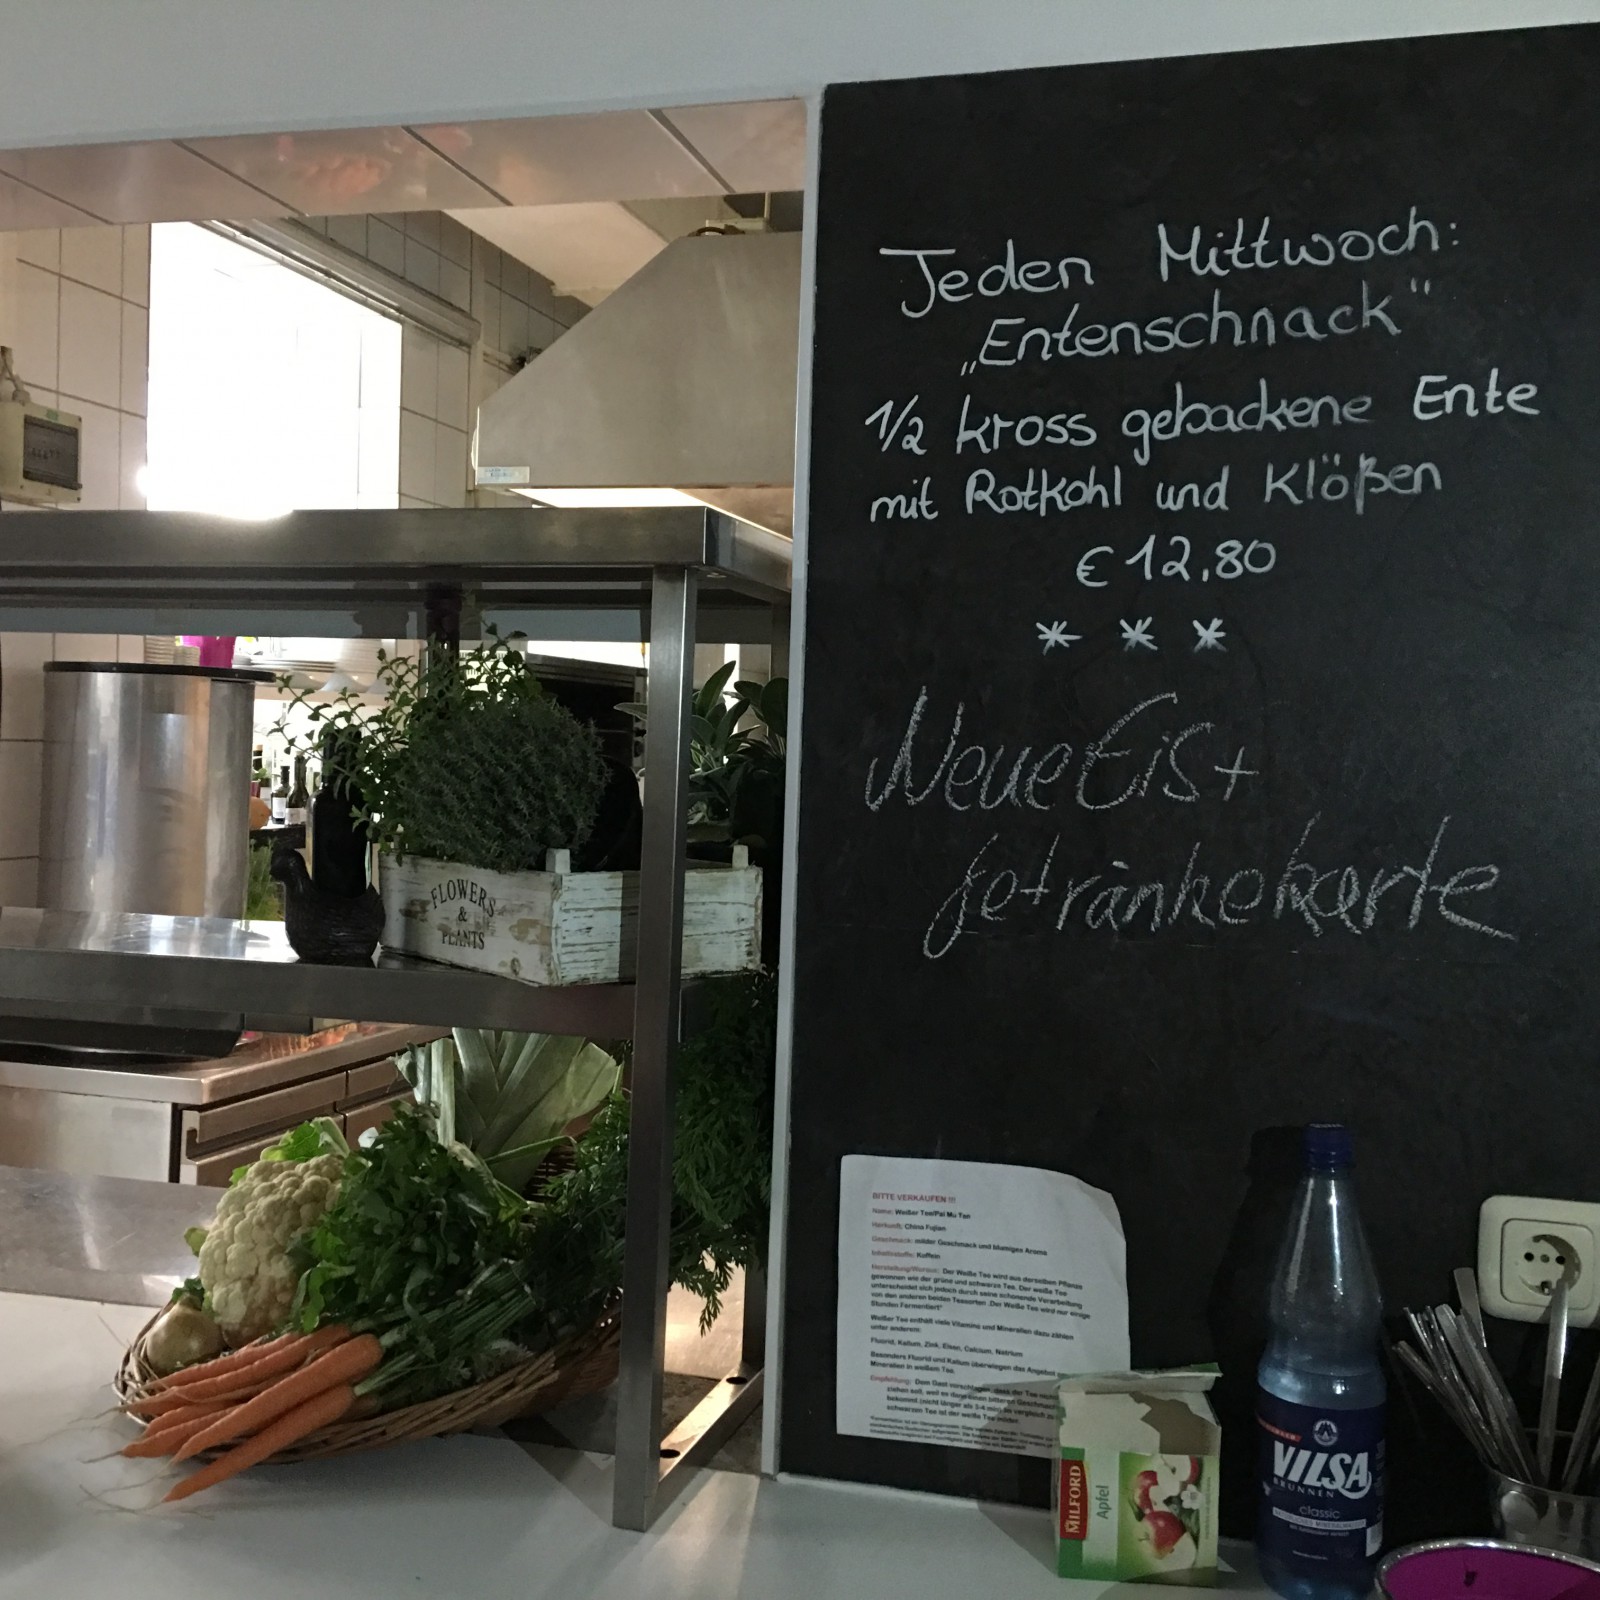 Jeden Mittwoch:
„Entenschnack"
1/2 kross gebackene Ente
mit Rotkohl und Klößen
€ 12,80
* * *
Neue Eis +
Getränkekarte
FLOWERS
&
PLANTS
BITTE VERKAUFEN !!!
Name: Weißer Tee/Pai Mu Tan
Herkunft: China Fujian
Geschmack: milder Geschmack und blumiges Aroma
Inhaltsstoffe: Koffein
Herstellung/Woraus: Der Weiße Tee wird aus derselben Pflanze
gewonnen wie der grüne und schwarze Tee. Der weiße Tee
unterscheidet sich jedoch durch seine schonende Verarbeitung
von den anderen beiden Teesorten .Der Weiße Tee wird nur einige
Stunden Fermentiert*
Weißer Tee enthält viele Vitamine und Mineralien dazu zählen
unter anderem:
Fluorid, Kalium, Zink, Eisen, Calcium, Natrium
Besonders Fluorid und Kalium überwiegen das Angebot
Mineralien in weißem Tee.
Empfehlung: Dem Gast vorschlagen, dass der Tee
ziehen soll, weil es dann einen bitteren Geschmack
bekommt (nicht länger als 3-4 min) im vergleich zu
schwarzen Tee ist der weiße Tee
MILFORD
Apfel
VILSA
BRUNNEN
classic